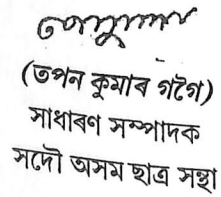 (তপন কুমাৰ গগৈ)
সাধাৰণ সম্পাদক
সদৌ অসম ছাত্ৰ সন্থা